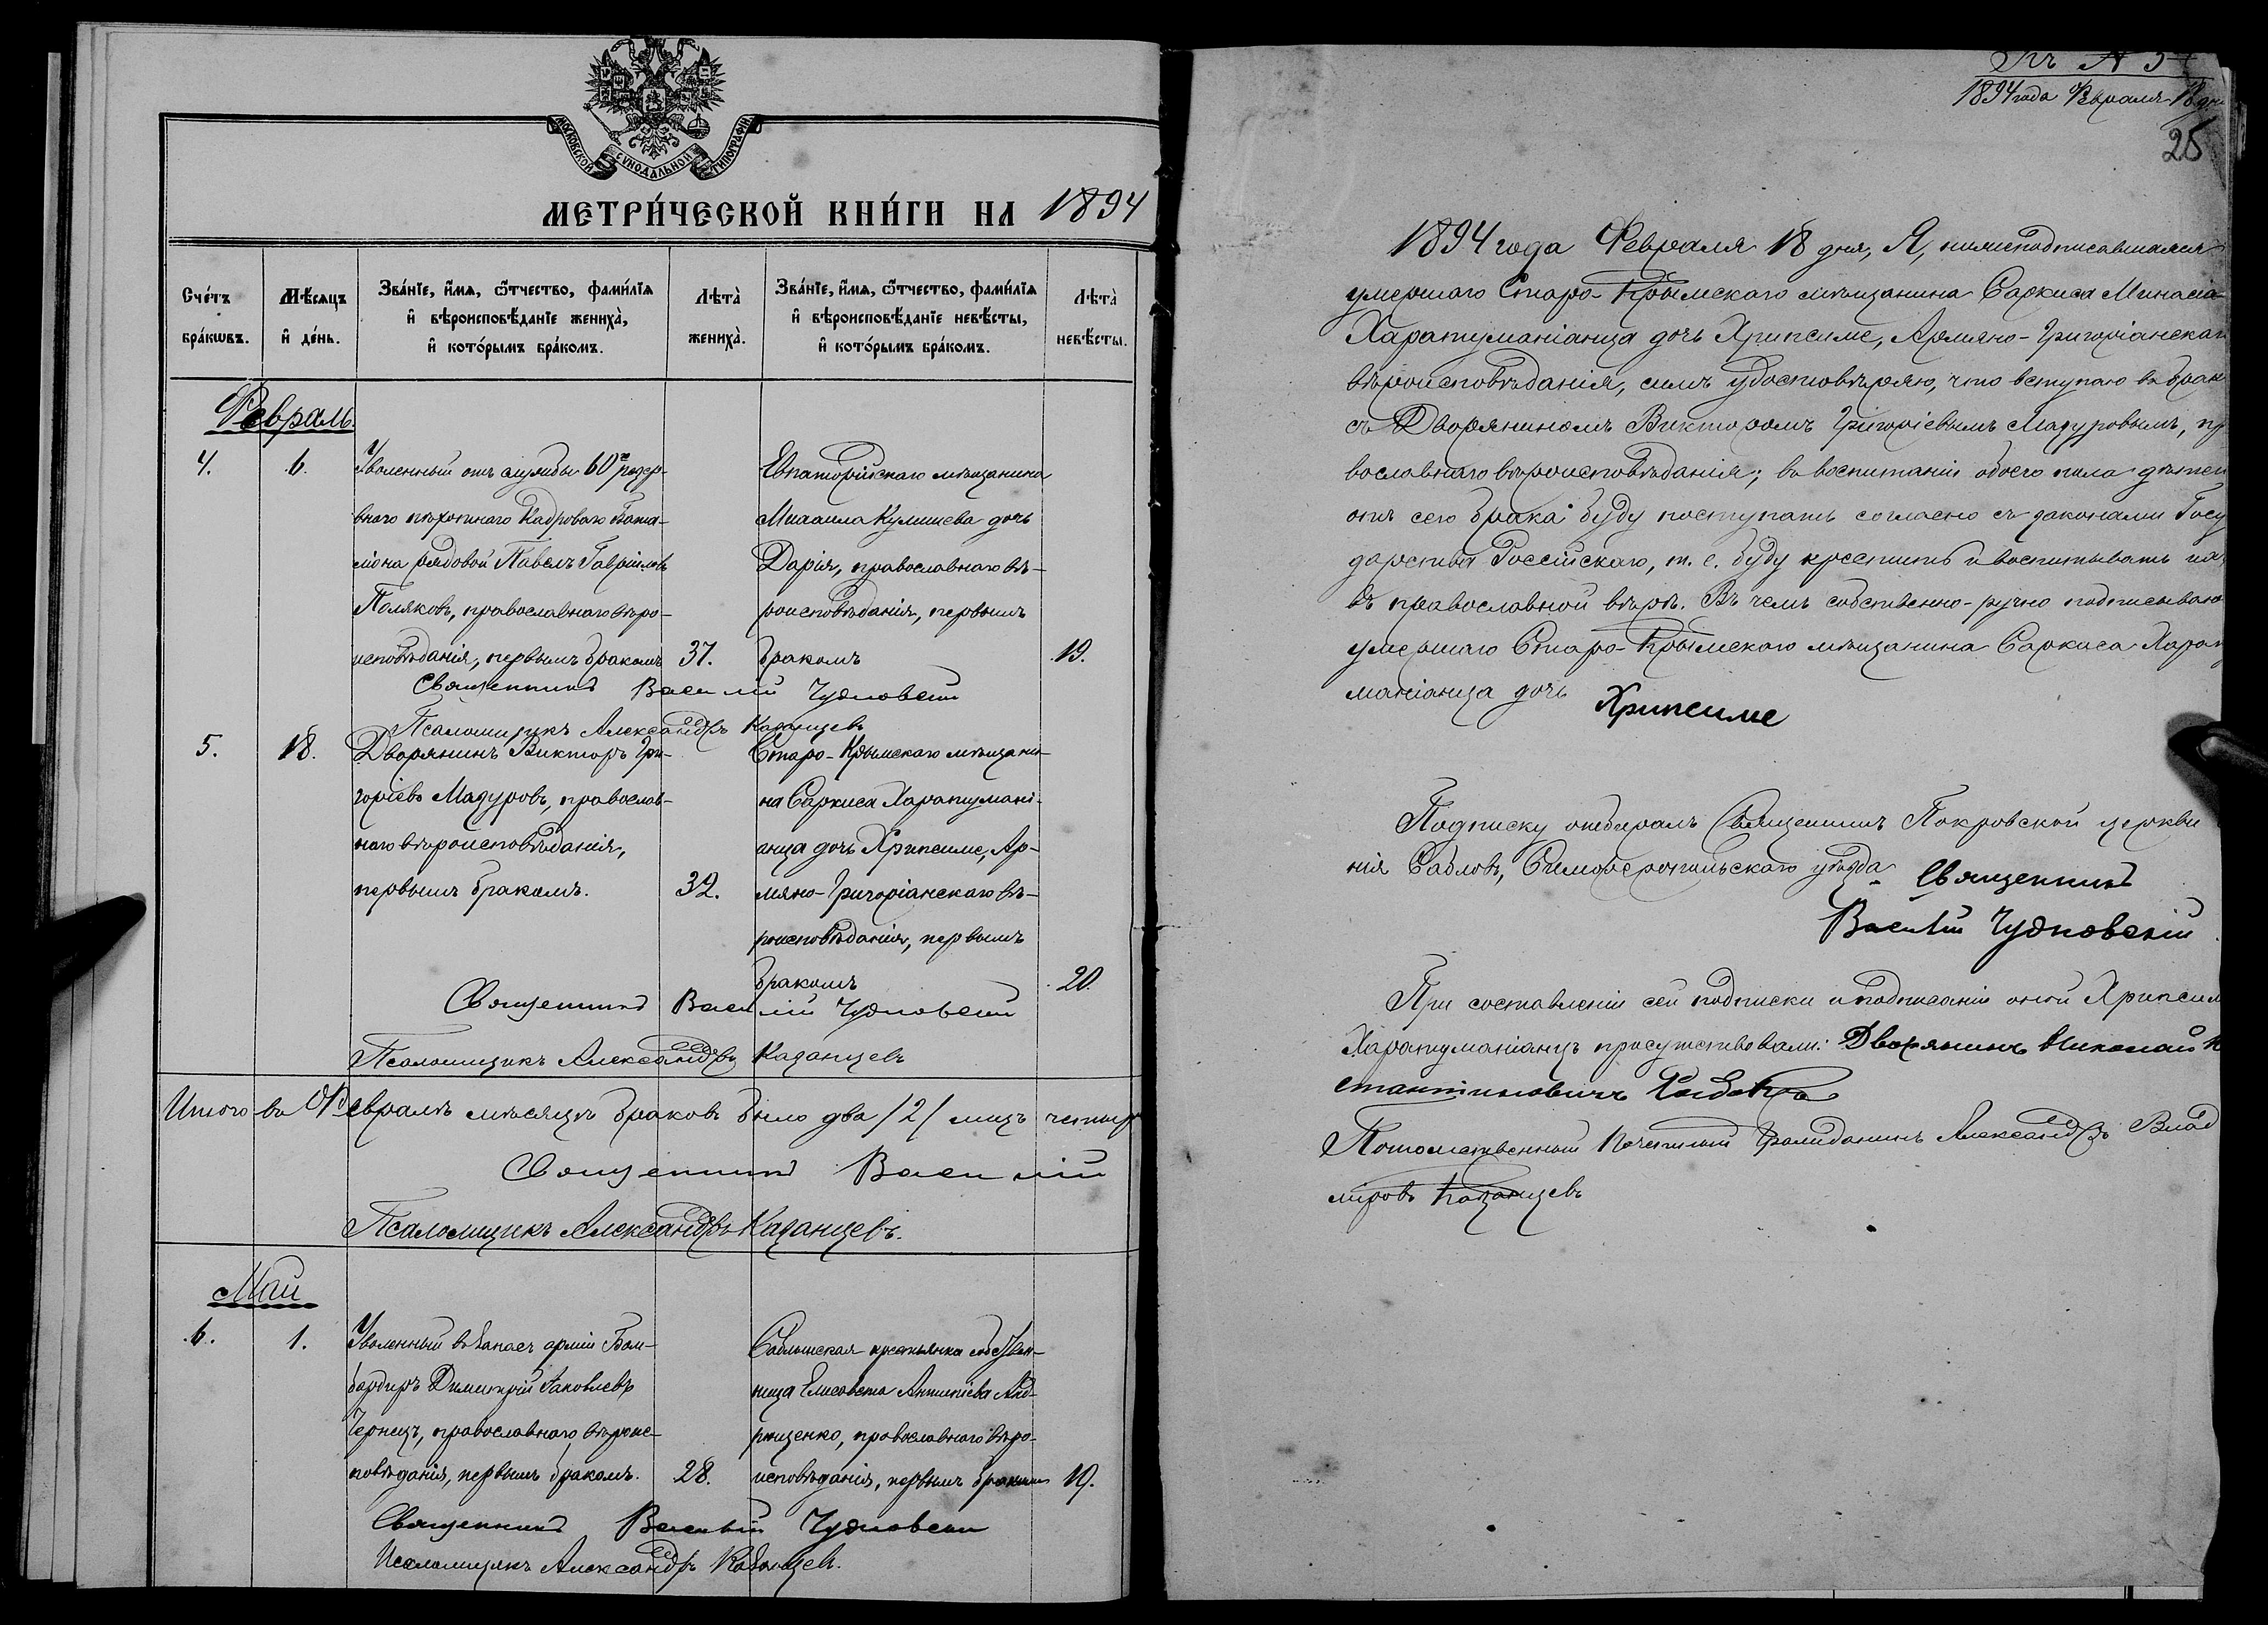 МОСКОВСКОЙ СѴНОДАЛЬНОЙ ТИПОГРАФІИ
МЕТРИ́ЧЕСКОЙ КНИ́ГИ НА 1894
Сче́тъ бра́кωвъ.
Мѣ́сяцъ и҆ де́нь.
Зва́нїе, и҆́мя, ѻ҆́тчество, фами́лїя
и҆ вѣроисповѣ́данїе жениха̀,
и҆ кото́рымъ бра́комъ.
Лѣта̀ жениха̀.
Зва́нїе, и҆́мя, ѻ҆́тчество, фами́лїя
и҆ вѣроисповѣ́данїе невѣ́сты,
и҆ кото́рымъ бра́комъ.
Лѣта̀ невѣ́сты.
Февраль.
4.
6.
Уволенный отъ службы 60го резер-
внаго пѣхотнаго Кадроваго Бата-
ліона рядовой Павелъ Гавріиловъ
Поляковъ, православнаго вѣро-
исповѣданія, первымъ бракомъ
37.
Евпаторійскаго мѣщанина
Михаила Кулишева дочь
Дарія, православнаго вѣ-
роисповѣданія, первымъ
бракомъ
19.
Священникъ Василій Чудновскій
Псаломщикъ Александръ Казанцевъ
5.
18.
Дворянинъ Викторъ Гри-
горіевъ Мазуровъ, православ-
наго вѣроисповѣданія,
первымъ бракомъ.
32.
Старо-Крымскаго мѣщани-
на Саркиса Харатумані-
анца дочь Хрипсиме, Ар-
мяно-Григоріанскаго вѣ-
роисповѣданія, первымъ
бракомъ
20.
Священникъ Василій Чудновскій
Псаломщикъ Александръ Казанцевъ
Итого въ Февралѣ мѣсяцѣ браковъ было два /2/ лицъ четыр
Священникъ Василій
Псаломщикъ Александръ Казанцевъ.
Май
6.
1.
Уволенный въ запасъ арміи Бом-
бардиръ Димитрій Іаковлевъ
Чернецъ, православнаго вѣроис-
повѣданія, первымъ бракомъ.
28.
Саблынская крестьянка собствен-
ница Елисавета Антипіева Анд-
рющенко, православнаго вѣро-
исповѣданія, первымъ бракомъ
19.
Священникъ Василій Чудновскій
Псаломщикъ Александръ Казанцевъ.
Къ № 5
1894 года Февраля 18 дн
25
1894 года Февраля 18 дня, Я, нижеподписавшаяся
умершаго Старо-Крымскаго мѣщанина Саркиса Минасіа
Харатуманіанца дочь Хрипсиме, Армяно-Григоріанскаг
вѣроисповѣданія, симъ удостовѣряю, что вступаю въ брак
съ Дворяниномъ Викторомъ Григоріевымъ Мазуровымъ, пр
вославнаго вѣроисповѣданія; въ воспитаніи обоего пола дѣтей
отъ сего брака буду поступать согласно съ законами Госу
дарства Россійскаго, т. е. буду крестить и воспитывать их
въ православной вѣрѣ. Въ чемъ собственно-ручно подписываю
умершаго Старо-Крымскаго мѣщанина Саркиса Харат
маніанца дочь Хрипсиме
Подписку отбиралъ Священникъ Покровской церкви
нія Сабловъ, Симферопольскаго уѣзда Священникъ
Василій Чудновскій
При составленіи сей подписки и подписаніи оной Хрипсим
Харатуманіанцъ присутствовали: Дворянинъ Николай К
стантиновичъ
Потомственный Почетный Гражданинъ Александръ Влад
міровъ Казанцевъ